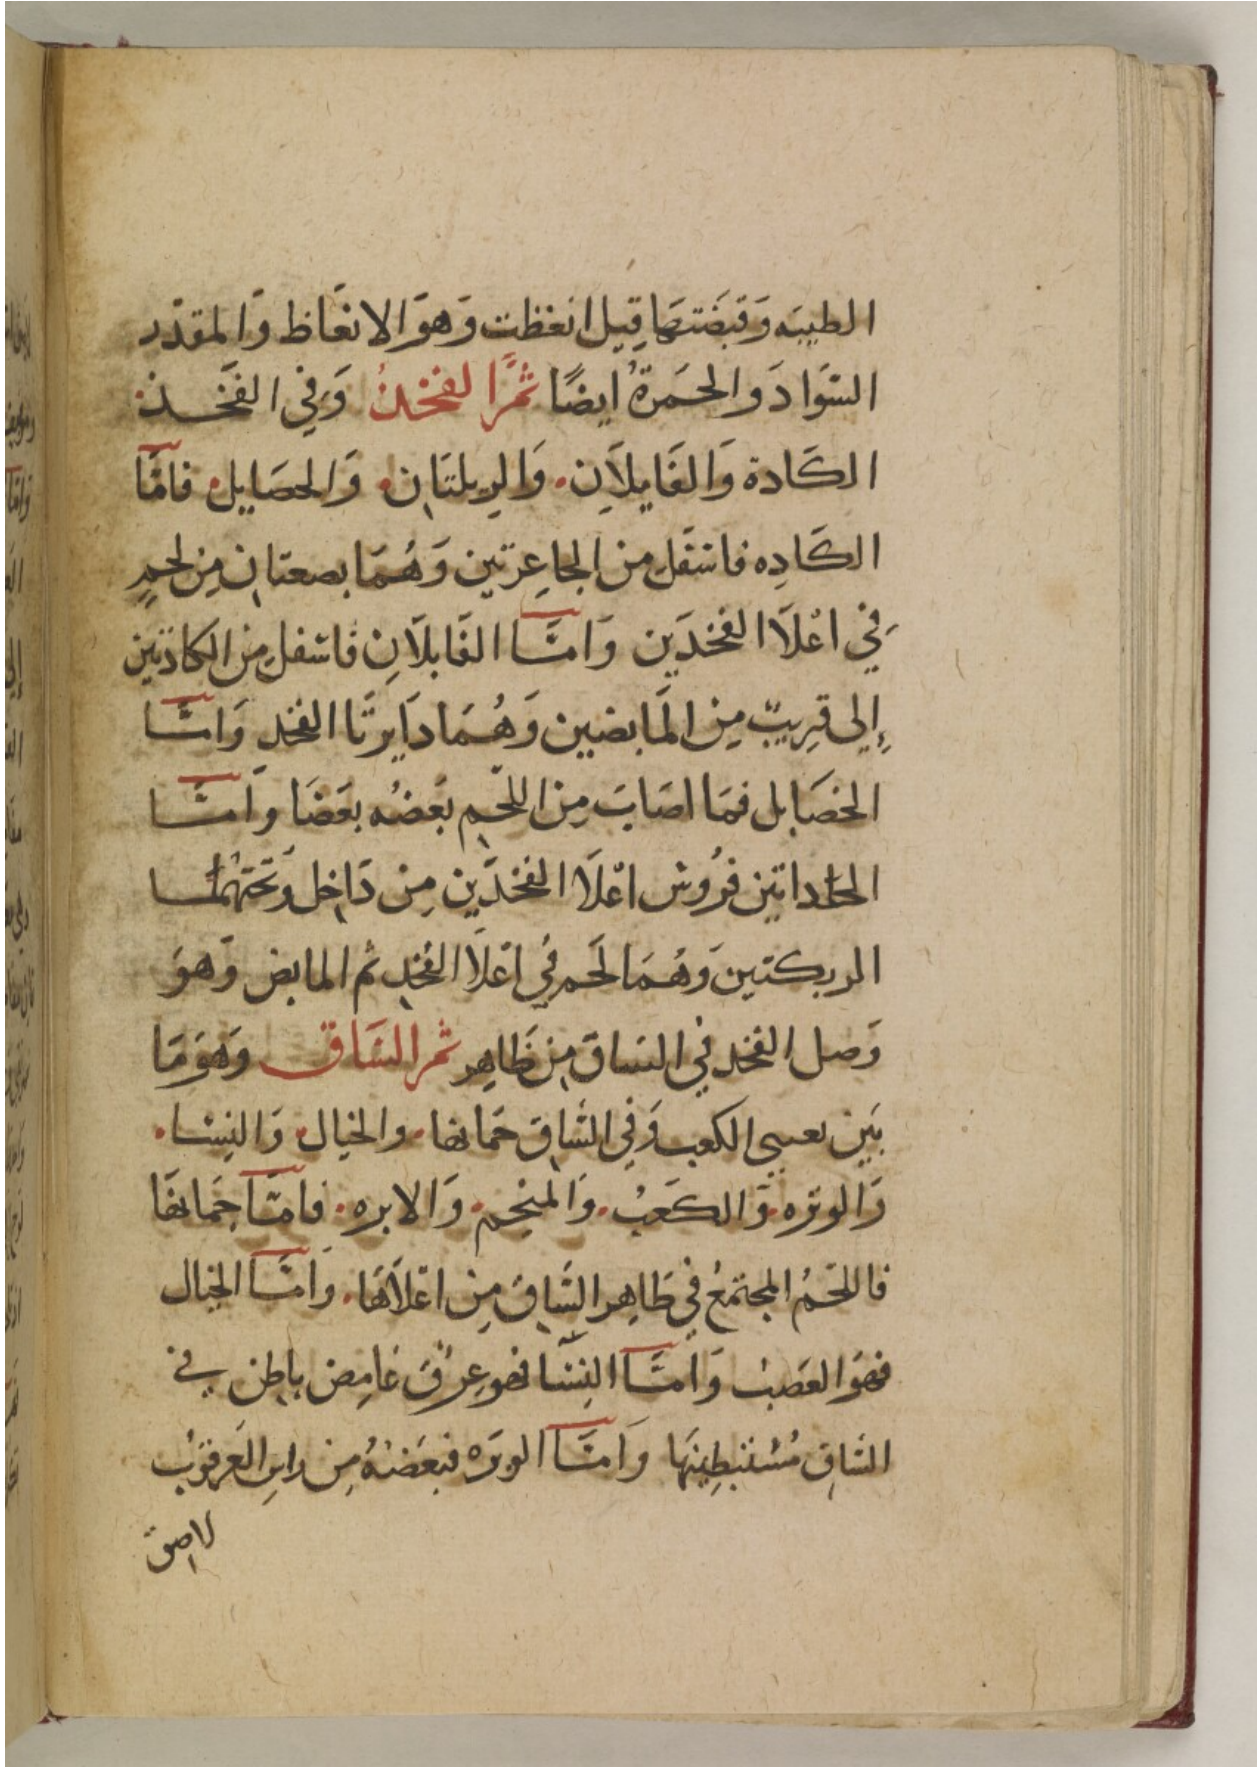 الطيبه وَقبَضَتهَا قِيل انغظت وَهوَ الانغَاظ وَالمقدّر
السَوَادَ والحمَرةُ ايضًا ثمَّ الفخذُ وَفي الفَخذ
الكَادة وَالغَايلاَنِ وَالرِبلتَانِ وَالحصَايل فامَّا
الكَادِه فاسَفَل مِن الجاعِرتين وَهُمَا بصعتان مِن لحمٍ
في اعْلاَ الفخذَين وَامَّا الغَايلاَنِ فاسَفل مِن الكاذتين
إِلى قرِيبٍ مِن المَابضين وَهُمَا دَايرتَا الفخذِ وَامَّا
الخصَايل فمَا اصَابَ مِن اللحَم بَعضُه بعَضَا وَامَّا
الحاداتين فرُوش اعْلاَ الفخذَين مِن دَاخِل وَتحتَهُمَا
الربكتين وَهُمَا لَحم في اعْلاَ الفُخذِ ثم المابض وَهوَ
وَصل الفخذ في السَاق مِن ظَاهِر ثمّ السَاق وَهوَ مَا
بَين الكعب وَفي السَاق حمَاتهَا والخيال وَالنِسَا
وَالوتره وَالكَعَبُ وَالمنِجم وَالابره فامَّا حَمَاتهَا
فاللحَمُ المجتمعُ في ظَاهِر السَاقِ مِن اعْلاَهَا وَامَّا الخيال
فهوَ العصَب وَامَّا النِسَا فهو عِرقَ غامِض باطِن في
السَاقِ مُسْتَبطِنهَا وَامَّا الوترَه فبَعضهُ مِن راسِ العَرقوُب
لاصق